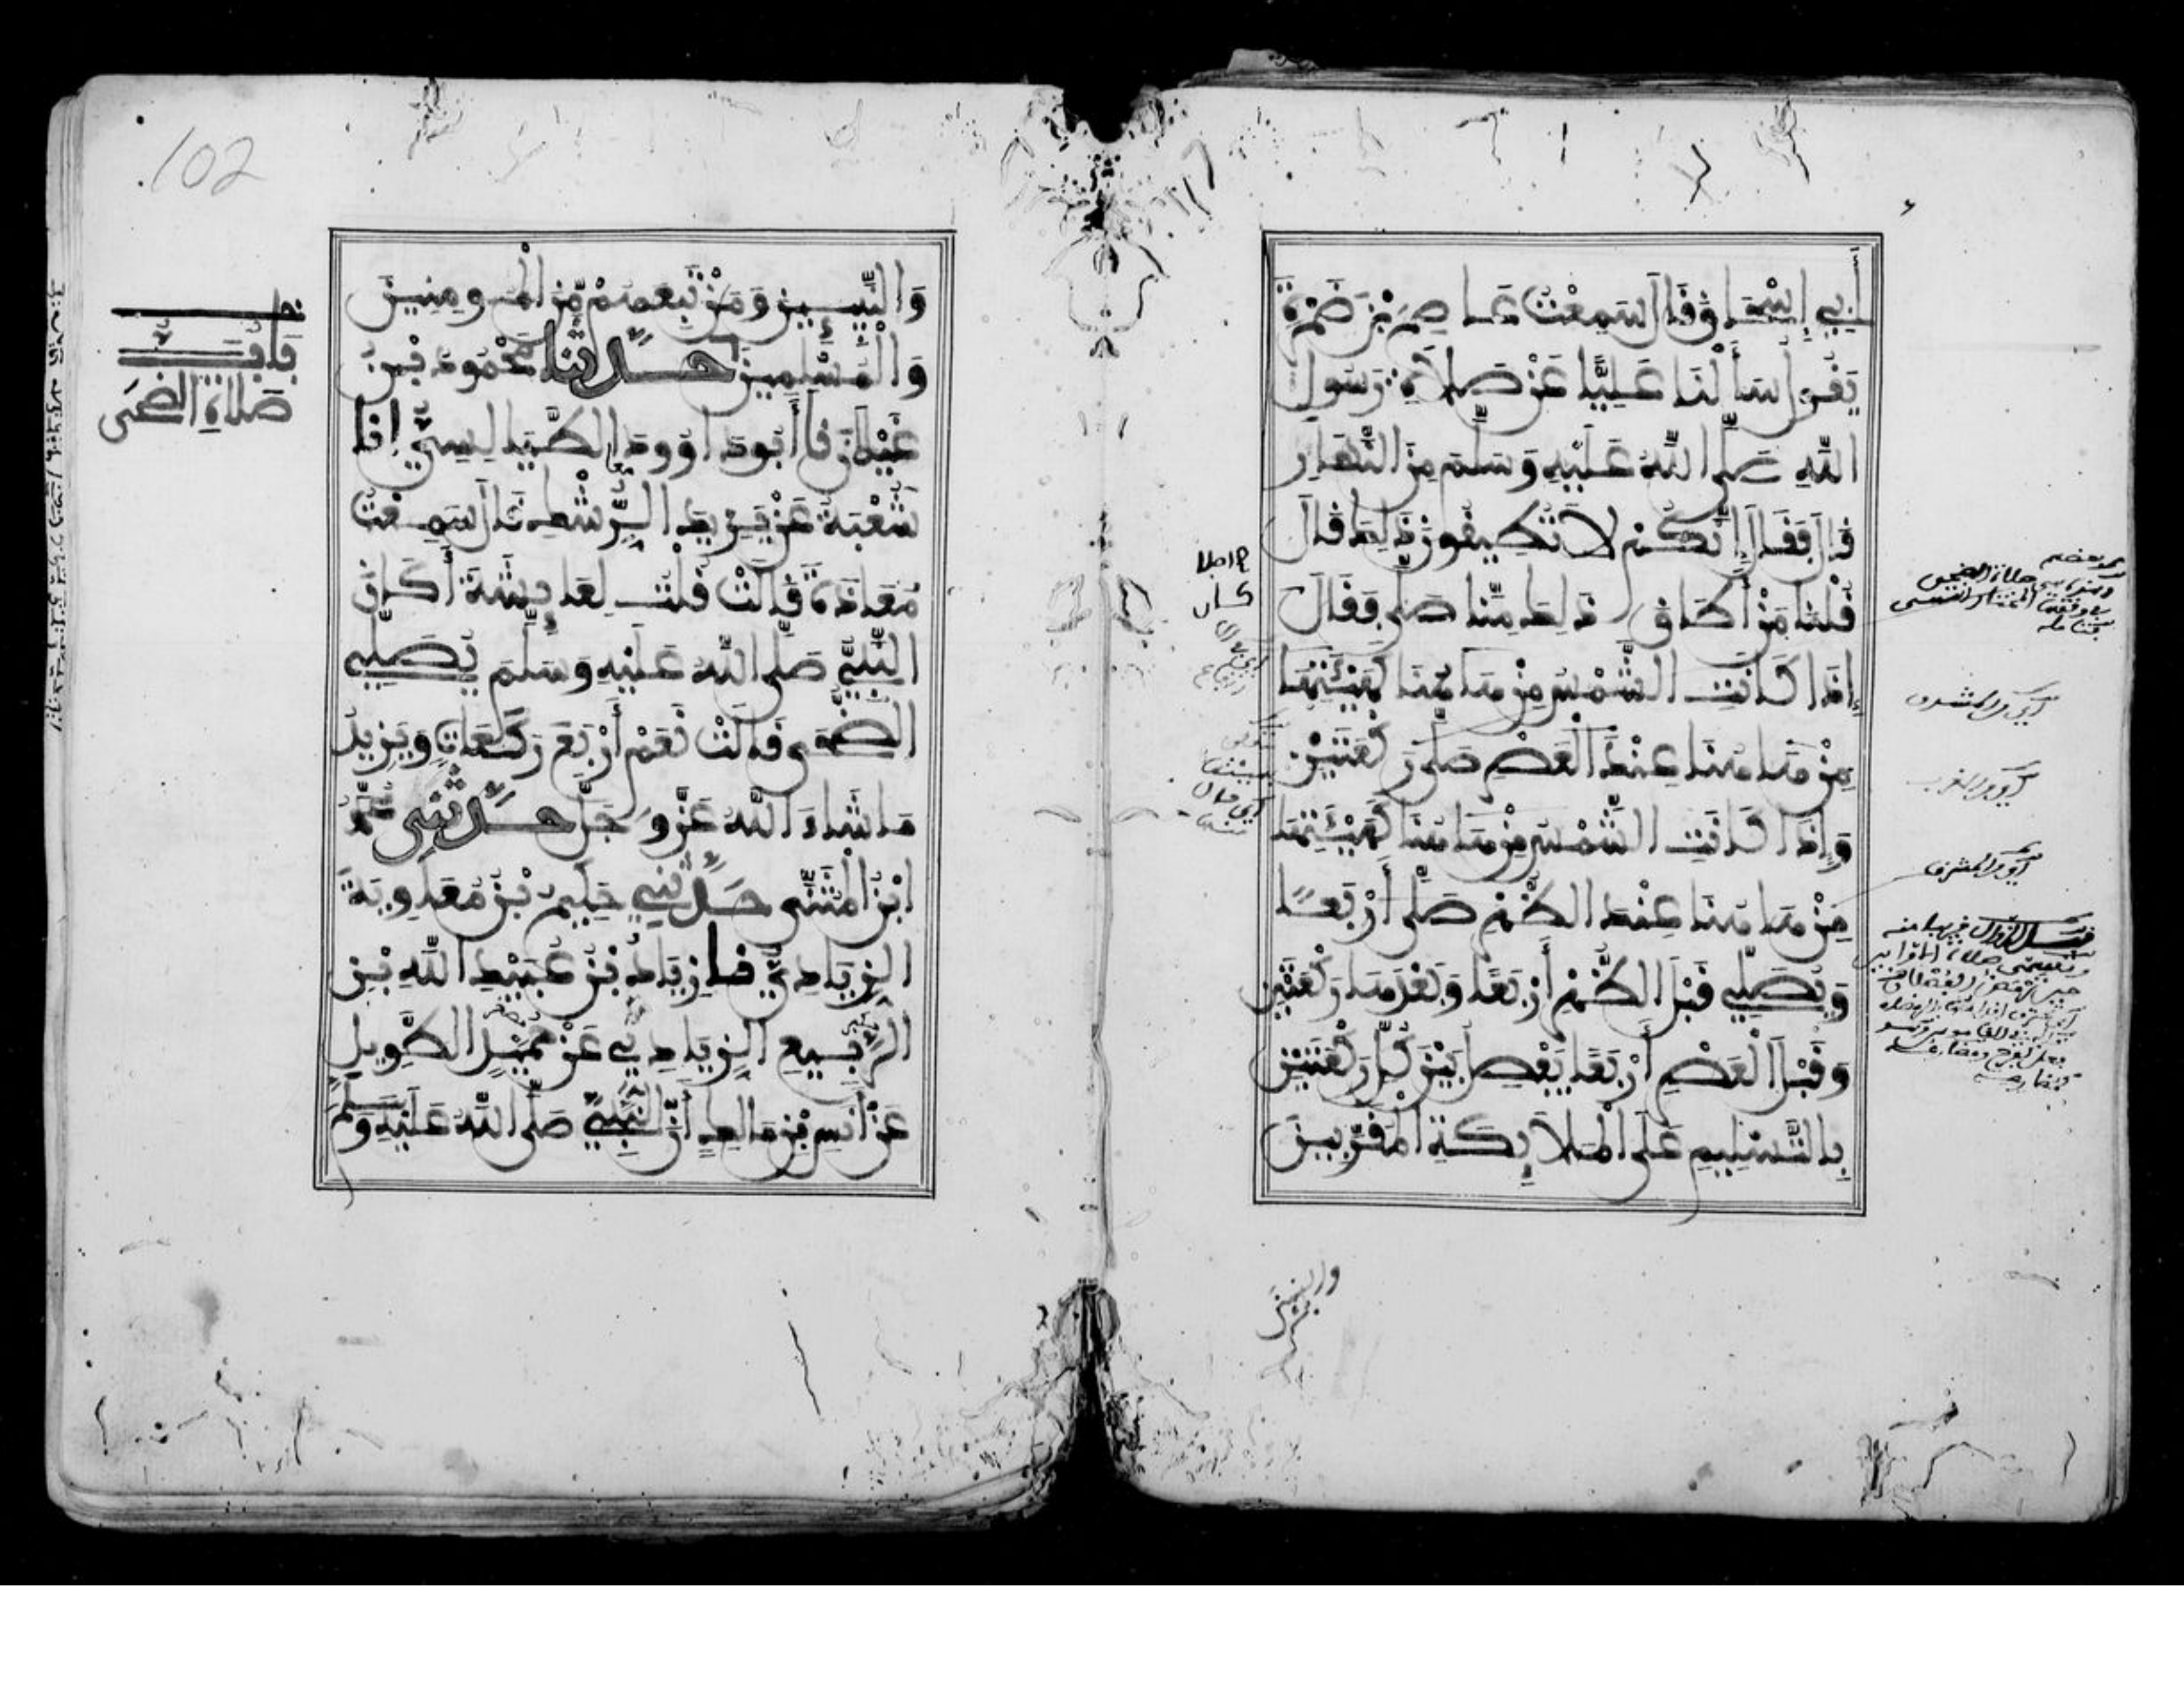 أَبِي إِسْحَاقَ قَالَ سَمِعْتُ عَاصِمَ بْنَ ضَمْرَةَ
يَقُولُ سَأَلْنَا عَلِيًّا عَنْ صَلَاةِ رَسُولِ
اللَّهِ صَلَّى اللَّهُ عَلَيْهِ وَسَلَّمَ مِنَ النَّهَارِ
قَالَ فَقَالَ إِنَّكُمْ لَا تُطِيقُونَ ذَلِكَ قَالَ
قُلْنَا مَنْ أَطَاقَ ذَلِكَ مِنَّا صَلَّى فَقَالَ
إِذَا كَانَتِ الشَّمْسُ مِنْ هَاهُنَا كَهَيْئَتِهَا
مِنْ هَاهُنَا عِنْدَ الْعَصْرِ صَلَّى رَكْعَتَيْنِ
وَإِذَا كَانَتِ الشَّمْسُ مِنْ هَاهُنَا كَهَيْئَتِهَا
مِنْ هَاهُنَا عِنْدَ الظُّهْرِ صَلَّى أَرْبَعًا
وَيُصَلِّي قَبْلَ الظُّهْرِ أَرْبَعًا وَبَعْدَهَا رَكْعَتَيْنِ
وَقَبْلَ الْعَصْرِ أَرْبَعًا يَفْصِلُ بَيْنَ كُلِّ رَكْعَتَيْنِ
بِالتَّسْلِيمِ عَلَى الْمَلَائِكَةِ الْمُقَرَّبِينَ
أي من المشرق
أي من المغرب
أي من المشرق
والنبيين
102
وَالنَّبِيِّينَ وَمَنْ تَبِعَهُمْ مِّنَ الْمُومِنِينَ
وَالْمُسْلِمِينَ حَدَّثَنَا مَحْمُودُ بْنُ
غَيْلَانَ نا أَبُو دَاوُودَ الطَّيَالِسِيُّ انا
شُعْبَةُ عَنْ يَزِيدَ الرِّشْكِ قَالَ سَمِعْتُ
مُعَاذَةَ قَالَتْ قُلْتُ لِعَايِشَةَ أَكَانَ
النَّبِيُّ صَلَّى اللَّهُ عَلَيْهِ وَسَلَّمَ يُصَلِّي
الضُّحَى قَالَتْ نَعَمْ أَرْبَعَ رَكَعَاتٍ وَيَزِيدُ
مَا شَاءَ اللَّهُ عَزَّ وَجَلَّ حَدَّثَنِي مُحَمَّدُ
ابْنُ الْمُثَنَّى حَدَّثَنِي حَكِيمُ بْنُ مُعَاوِيَةَ
الزِّيَادِيُّ نا زِيَادُ بْنُ عُبَيْدِ اللَّهِ بْنِ
الرَّبِيعِ الزِّيَادِيُّ عَنْ حُمَيْدٍ الطَّوِيلِ
عَنْ أَنَسِ بْنِ مَالِكٍ أَنَّ النَّبِيَّ صَلَّى اللَّهُ عَلَيْهِ وَسَلَّمَ
بَابُ
صَلَاةِ الضُّحَى